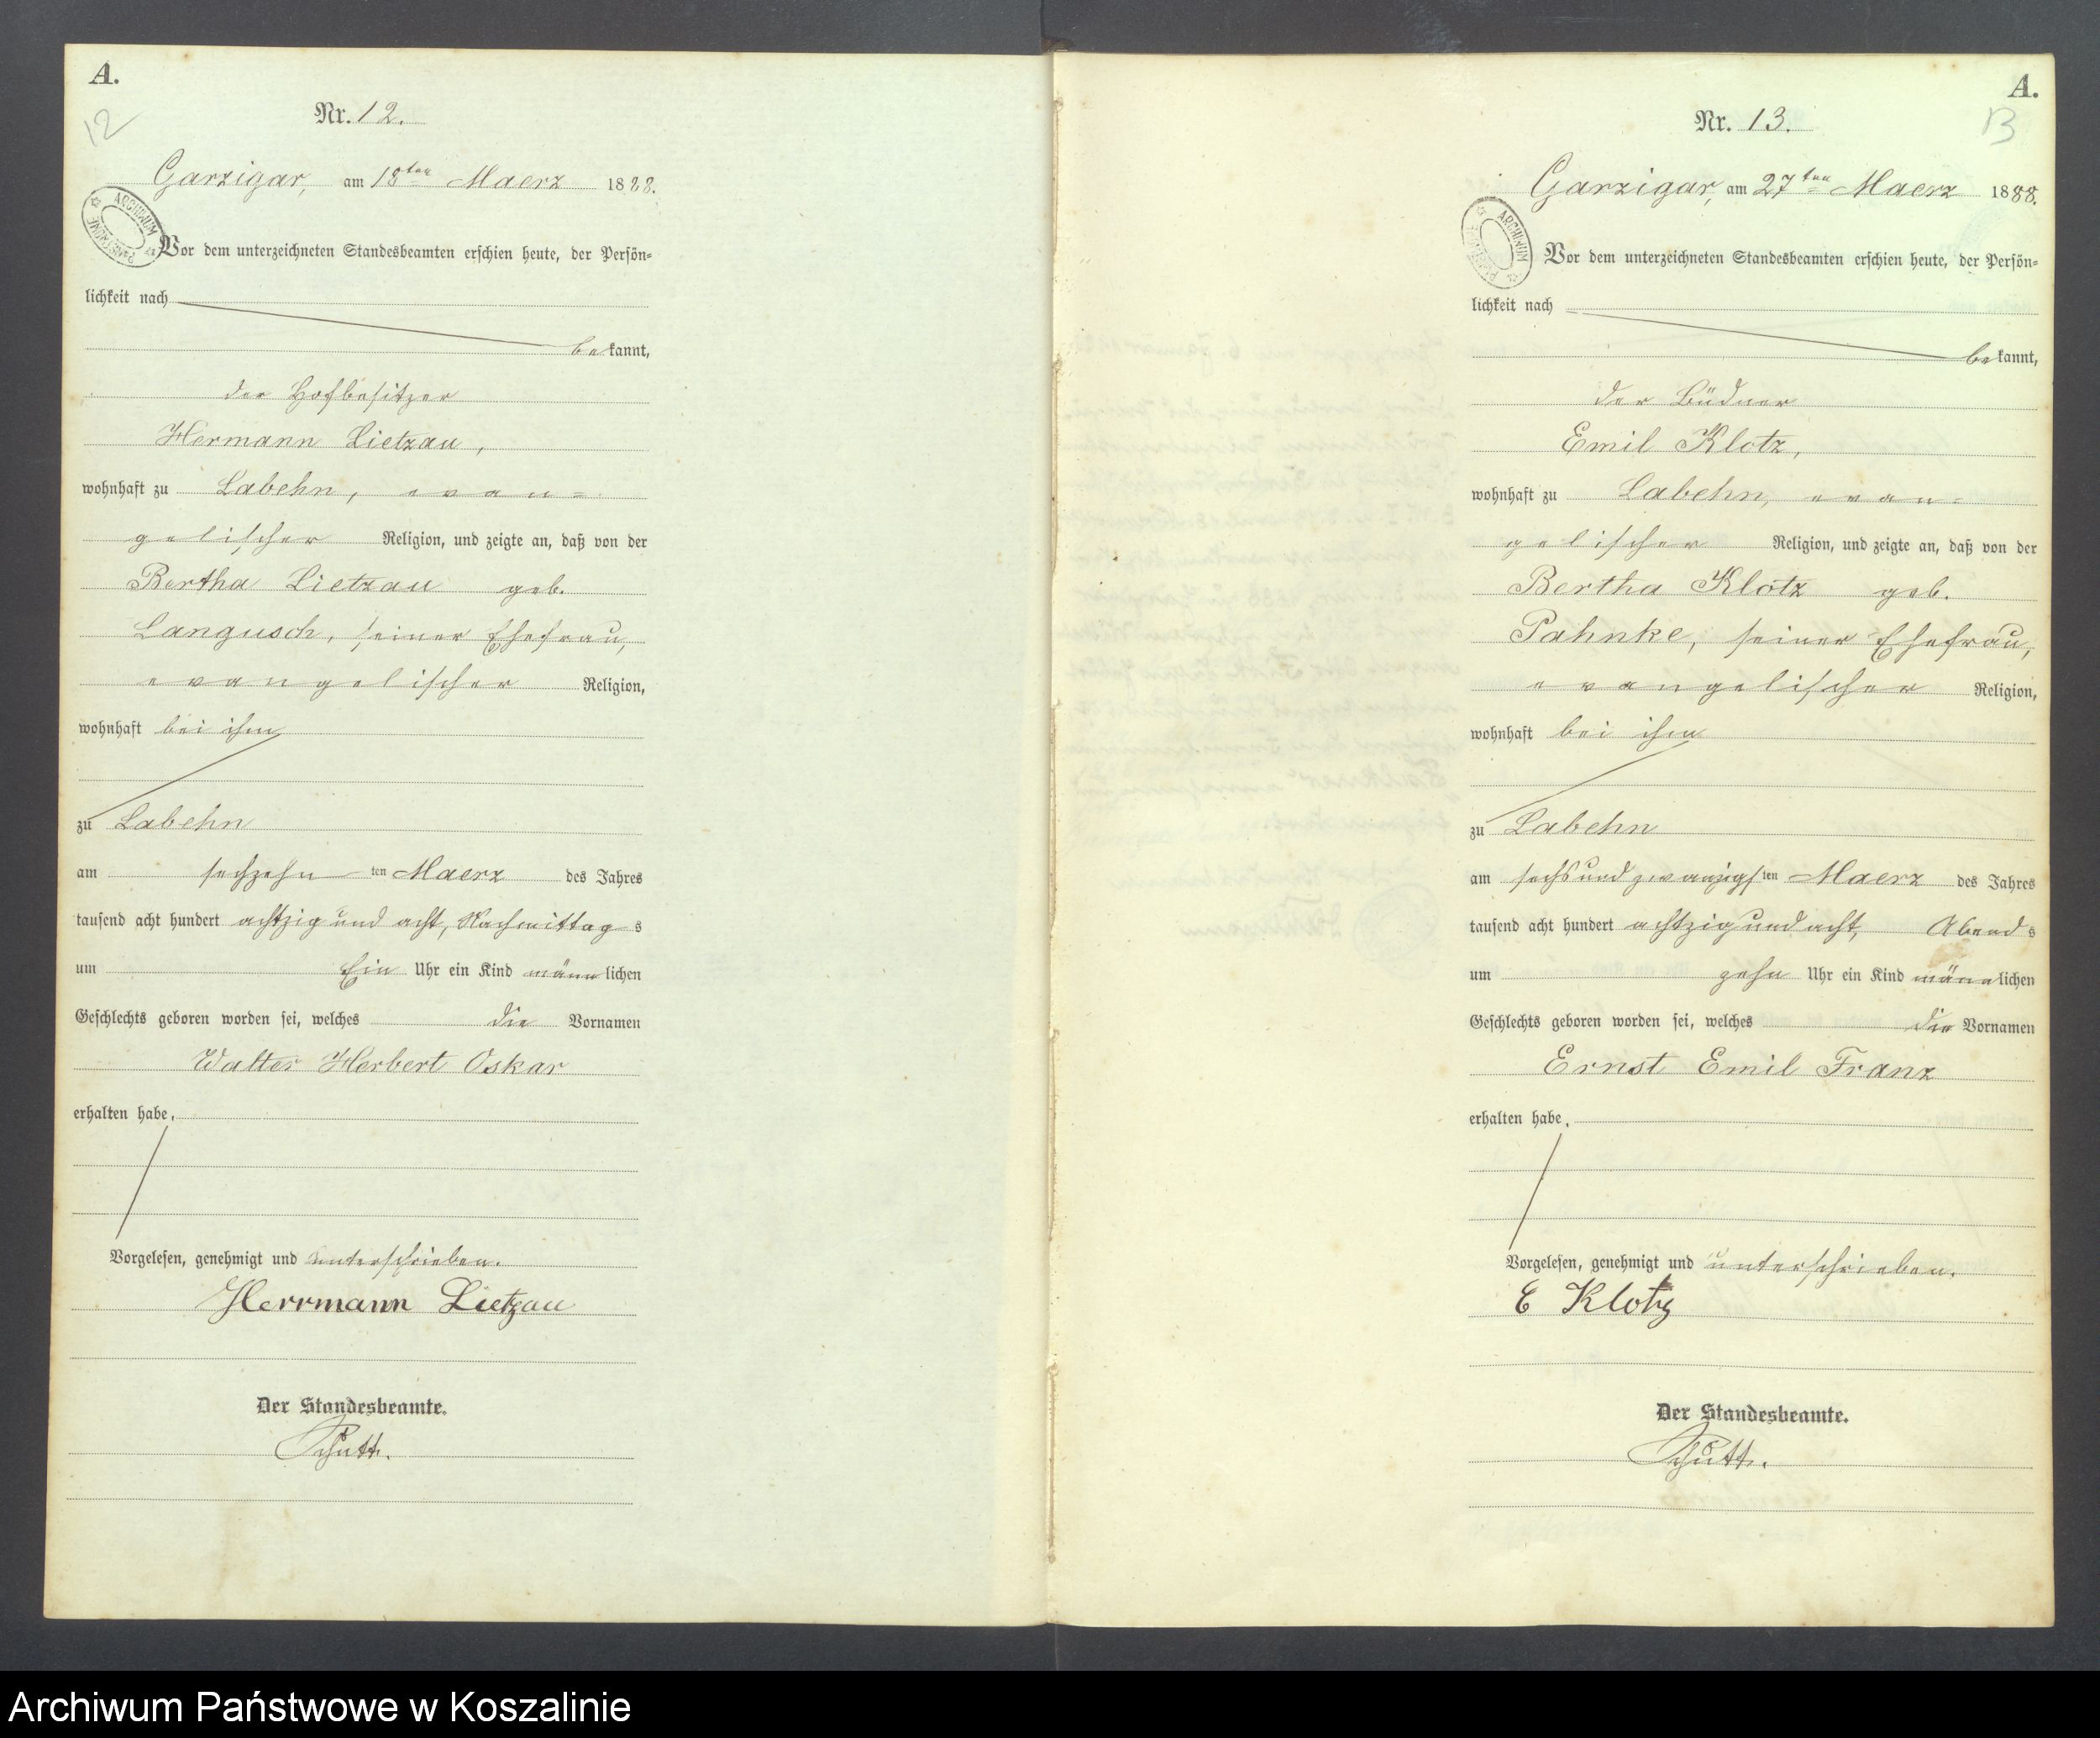 A.
12
Nr. 12.
Garzigar, am 18ten Maerz 1888.
ARCHIWUM PAŃSTWOWE
Vor dem unterzeichneten Standesbeamten erschien heute, der Persön-
lichkeit nach
bekannt,
der Hofbesitzer
Hermann Lietzau,
wohnhaft zu Labehn, evan=
gelischer Religion, und zeigte an, daß von der
Bertha Lietzau geb.
Langusch, seiner Ehefrau,
evangelischer Religion,
wohnhaft bei ihm
zu Labehn
am sechzehnten Maerz des Jahres
tausend acht hundert achtzig und acht, Nachmittags
um Ein Uhr ein Kind männlichen
Geschlechts geboren worden sei, welches die Vornamen
Walter Herbert Oskar
erhalten habe.
Vorgelesen, genehmigt und unterschrieben.
Herrmann Lietzau
Der Standesbeamte.
Schütt.
A.
13
Nr. 13.
Garzigar, am 27ten Maerz 1888.
ARCHIWUM PAŃSTWOWE
Vor dem unterzeichneten Standesbeamten erschien heute, der Persön-
lichkeit nach
bekannt,
der Büdner
Emil Klotz,
wohnhaft zu Labehn, evan=
gelischer Religion, und zeigte an, daß von der
Bertha Klotz geb.
Pahnke, seiner Ehefrau,
evangelischer Religion,
wohnhaft bei ihm
zu Labehn
am sechsundzwanzigsten Maerz des Jahres
tausend acht hundert achtzig und acht, Abends
um zehn Uhr ein Kind männlichen
Geschlechts geboren worden sei, welches die Vornamen
Ernst Emil Franz
erhalten habe.
Vorgelesen, genehmigt und unterschrieben.
E Klotz
Der Standesbeamte.
Schütt.
Archiwum Państwowe w Koszalinie